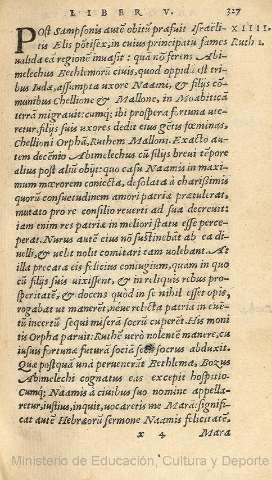 LIBER V. 327
Post Sampsonis autē obitū præfuit Israëli- XIIII.
tis Elis pōtifex, in cuius principatu fames Ruth 1.
valida ea regione inuasit: quā nō ferens Abi-
melechus Bethlemorū ciuis, quod oppidū est tri-
bus Iudæ, assumpta uxore Naami, & filijs cō-
munibus Chellione & Mallone, in Moabiticā
terrā migrauit: cumq; ibi prospera fortuna ute-
retur, filijs suis uxores dedit eius gētis fœminas,
Chellioni Orphā, Ruthem Malloni. Exacto au-
tem decēnio Abimelechus cū filijs breui tēpore
alius post aliū obijt: quo casu Naamis in maxi-
mum mœrorem coniecta, desolata à charissimis
quorū consuetudinem amori patriæ prætulerat,
mutato pro re consilio reuerti ad sua decreuit:
iam enim res patriæ in meliori statu esse perce-
perat. Nurus autē eius nō sustinebāt ab ea di-
uelli, & uelut nolit comitari eam uolebant. At
illa precata eis felicius coniugium, quam in quo
cū filijs suis uixissent, & in reliquis rebus pro-
speritatē, & docens quòd in se nihil esset opis,
rogabat ut manerēt, neue relicta patria in euē-
tū incertū sequi miserā socrū cuperēt. His moni-
tis Orpha paruit: Ruthē uerò nolentē manere, cu
iusuis fortunæ futurā sociā secū socrus abduxit.
Quæ postquā unà peruenerāt Bethlema, Bozus
Abimelechi cognatus eas excepit hospitio.
Cumq; Naamis à ciuibus suo nomine appella-
retur, iustius, inquit, uocaretis me Mara: signifi-
cat autē Hebræorū sermone Naamis felicitatē,
x 4 Mara
Ministerio de Educación, Cultura y Deporte